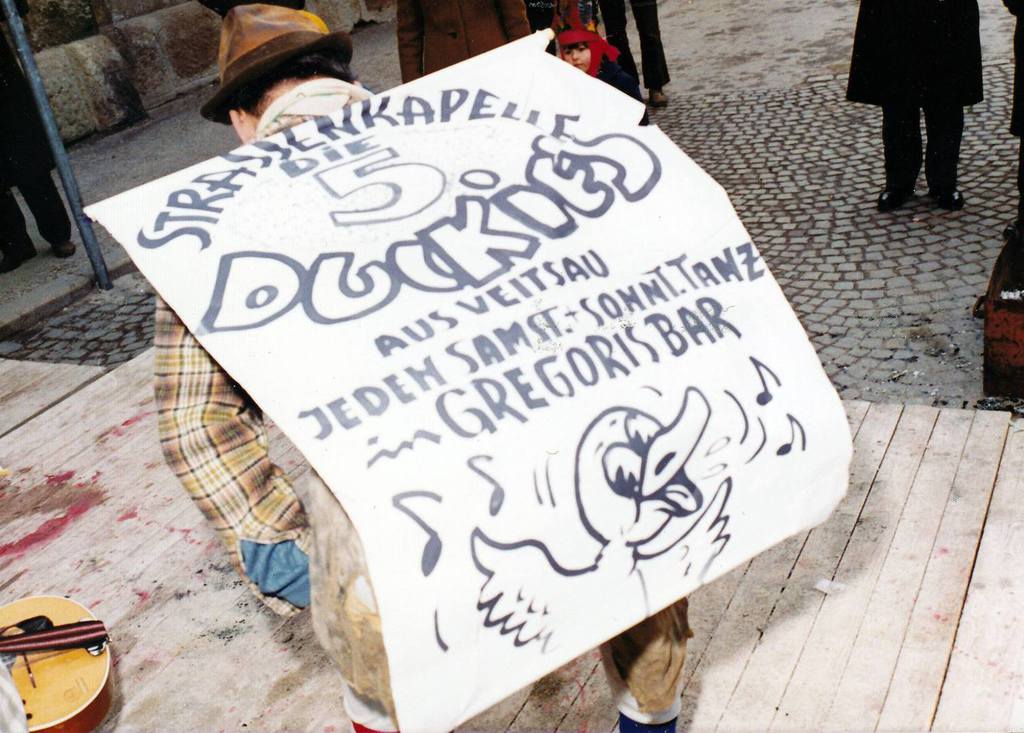 STRASSENKAPELLE
DIE
5.
DUCKIDES
AUS VEITSAU
JEDEN SAMST.+SONNT.TANZ
in GREGORIS BAR